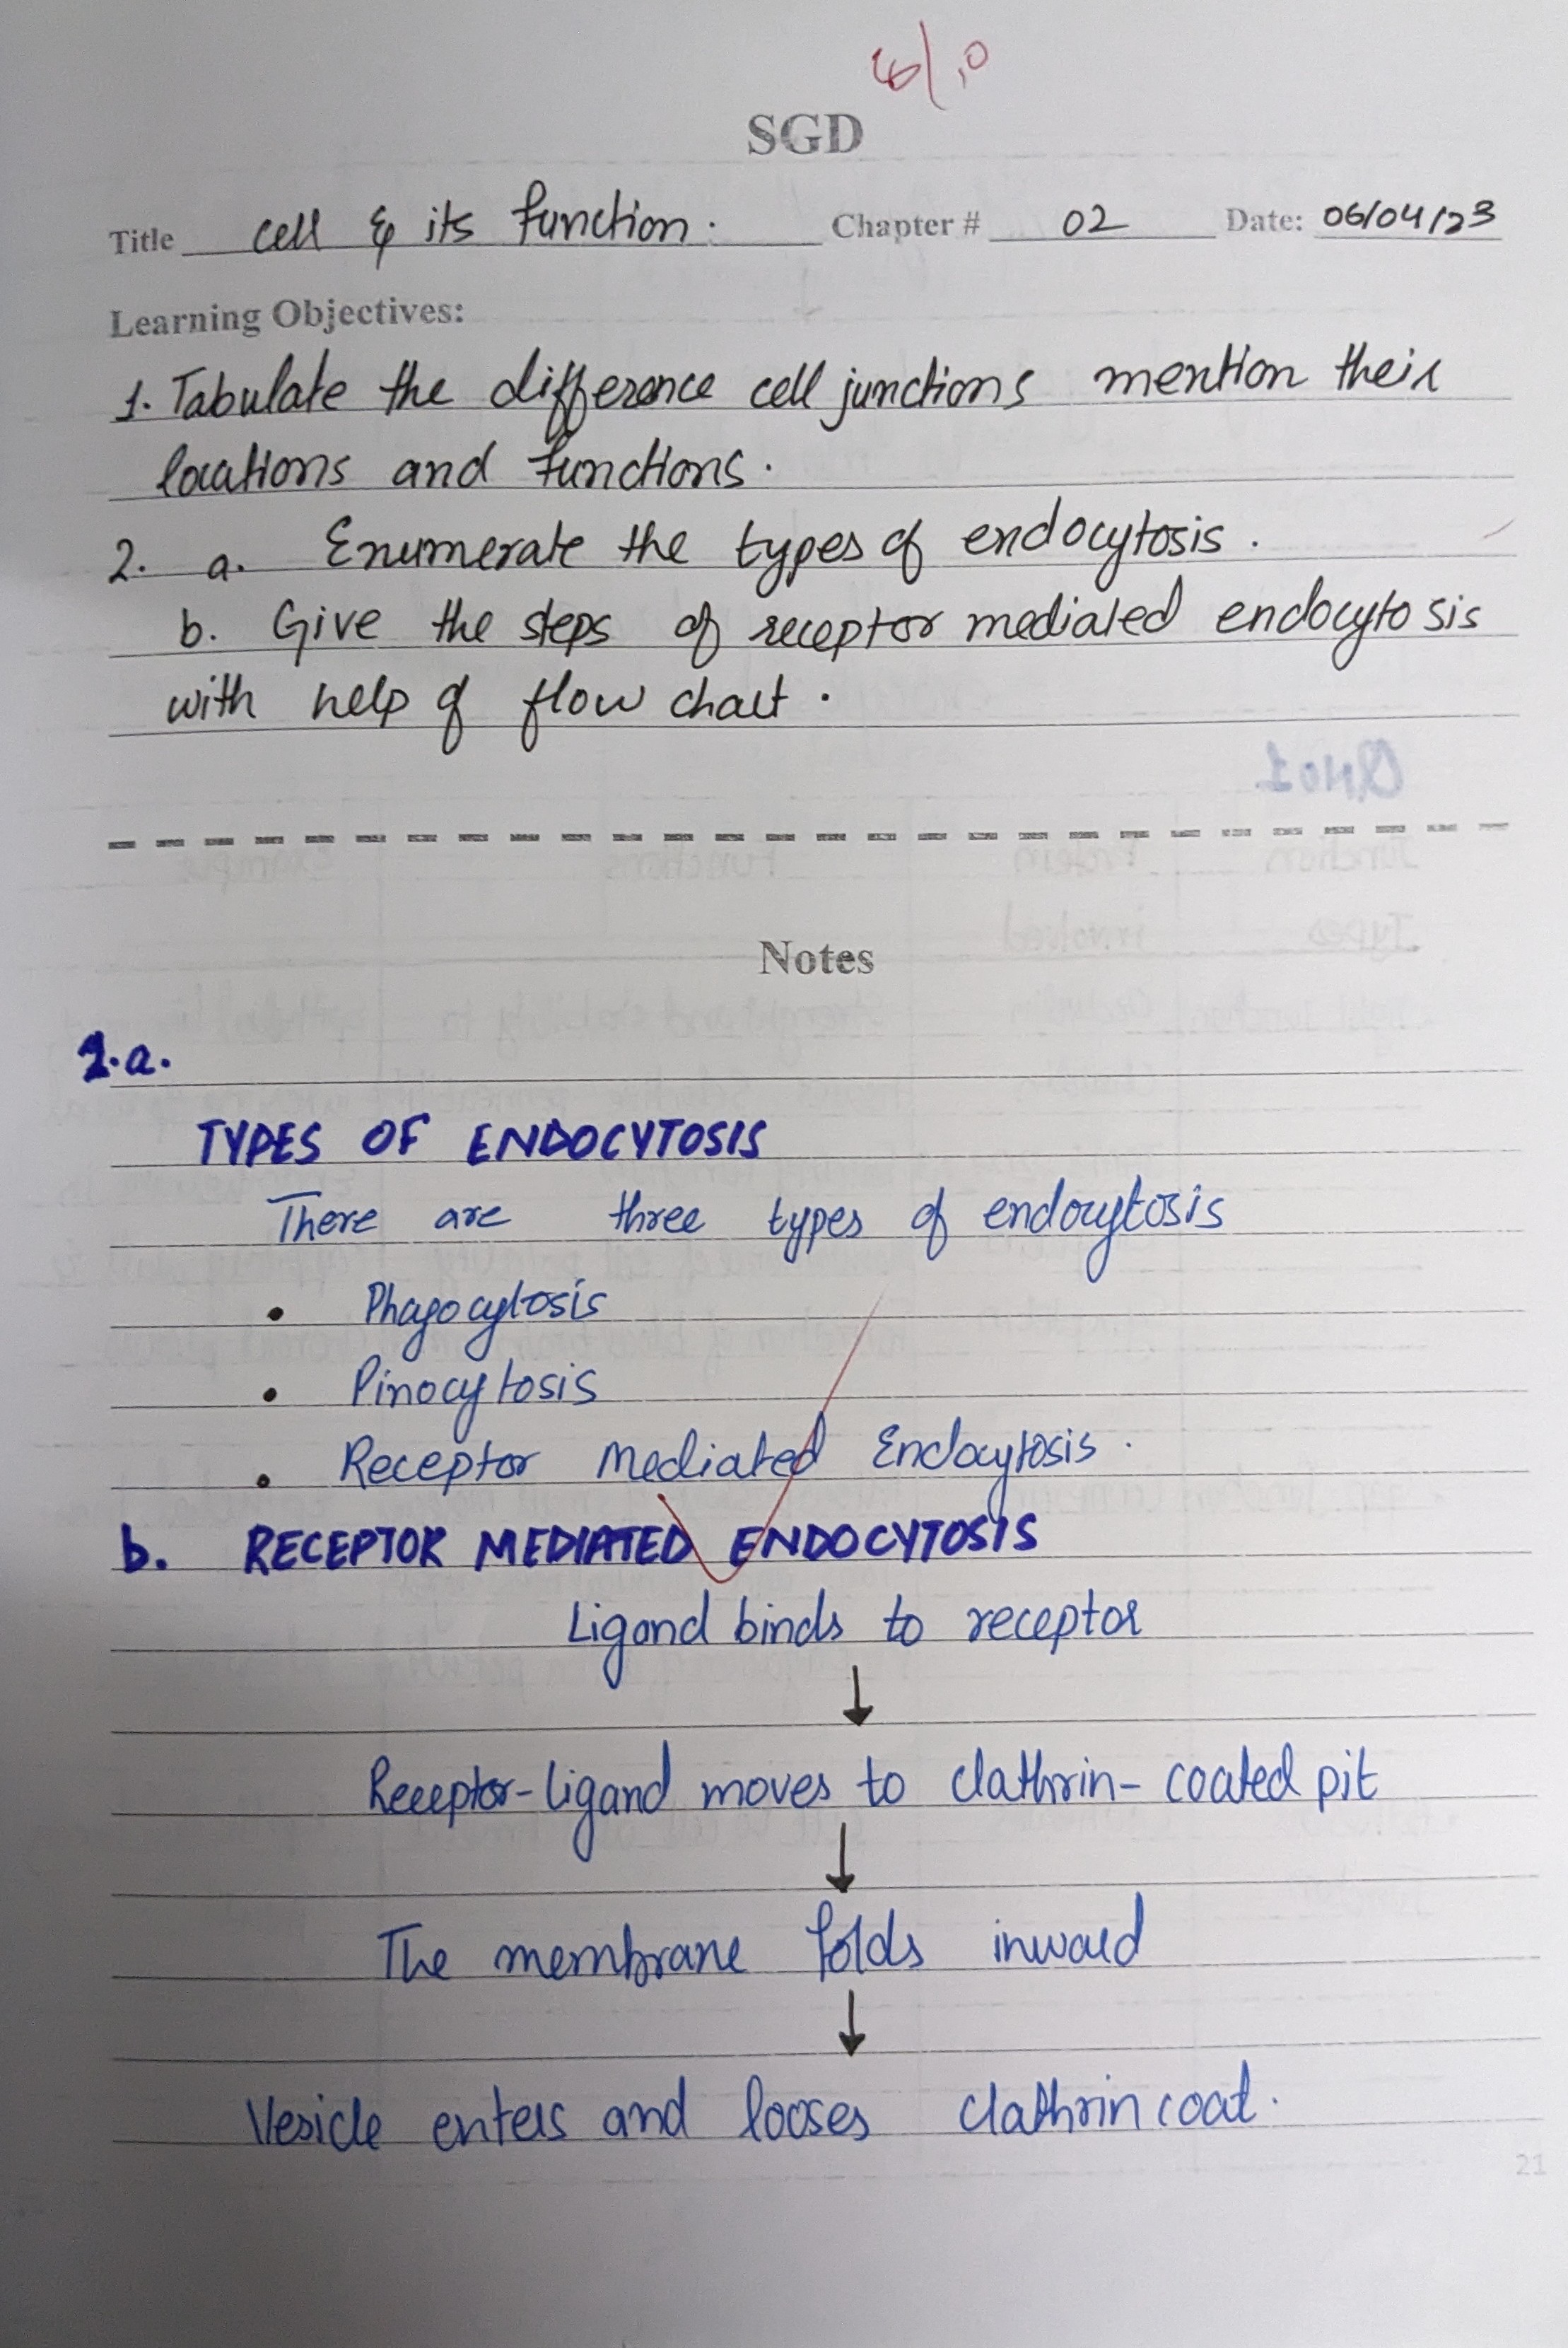 SGD
Title cell & its function. Chapter # 02 Date: 06/04/23
Learning Objectives:
1. Tabulate the difference cell junctions mention their
locations and functions.
2. a. Enumerate the types of endocytosis.
b. Give the steps of receptor mediated endocytosis
with help of flow chart.
Notes
2.a.
TYPES OF ENDOCYTOSIS
There are three types of endocytosis
• Phagocytosis
• Pinocytosis
• Receptor Mediated Endocytosis.
b. RECEPTOR MEDIATED ENDOCYTOSIS
Ligand binds to receptor
↓
Receptor-ligand moves to clathrin-coated pit
↓
The membrane folds inward
↓
Vesicle enters and looses clathrin coat.
21